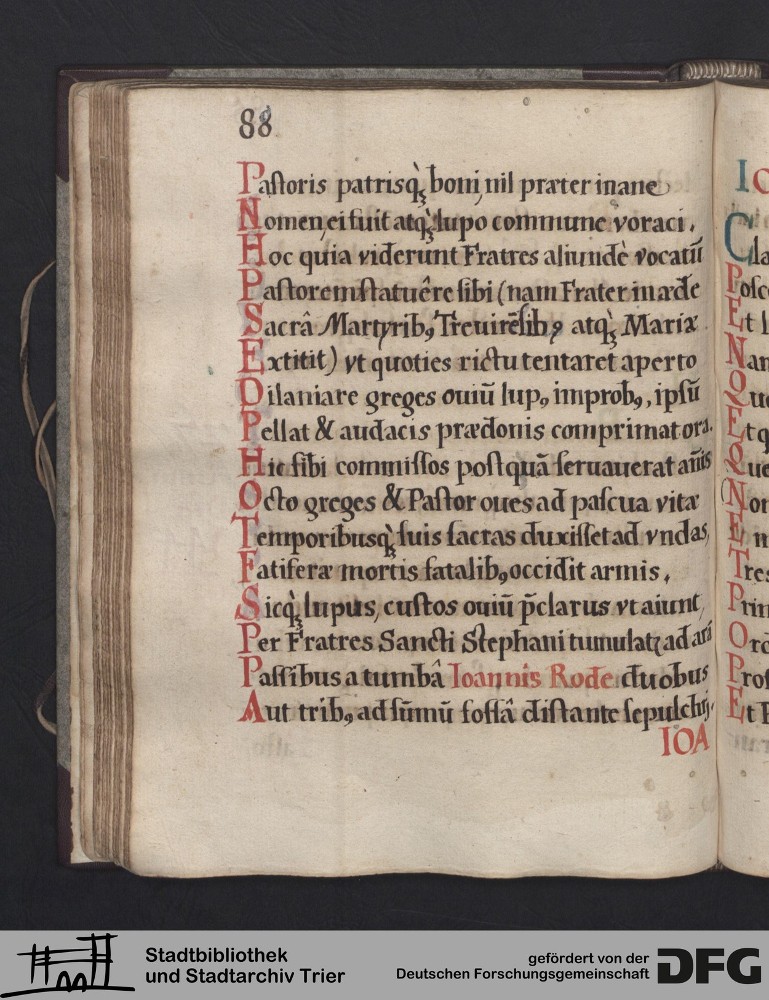 88
Pastoris patrisq́ꝫ boni, nil præter inane
Nomen, ei fuit atq́ꝫ lupo commune voraci.
Hoc quia viderunt Fratres aliundè vocatū
Pastorem statuêre sibi (nam Frater in æde
Sacrâ Martyribꝰ Treuirēsibꝰ atq́ꝫ Mariæ
Extitit) vt quoties rictu tentaret aperto
Dilaniare greges ouiū lupꝰ improbꝰ, ipsū
Pellat & audacis prædonis comprimat ora.
Hic sibi commissos postquā seruauerat añis
Octo greges & Pastor oues ad pascua vitæ
Temporibusq́ꝫ suis sacras duxisset ad vndas,
Fatiferæ mortis fatalibꝰ occidit armis,
Sicq́ꝫ lupus, custos ouiū p̄clarus vt aiunt,
Per Fratres Sancti Stephani tumulatꝛ ad arā
Passibus a tumbâ Ioannis Rode duobus
Aut tribꝰ, ad sūmū fossâ distante sepulchri.
IOA
IO
Cla
Posc
Et l
Nan
Quo
Et q
Que
(Non
E n
Tres
Prin
Ord
Prof
Et P
Stadtbibliothek
und Stadtarchiv Trier
gefördert von der
Deutschen Forschungsgemeinschaft
DFG